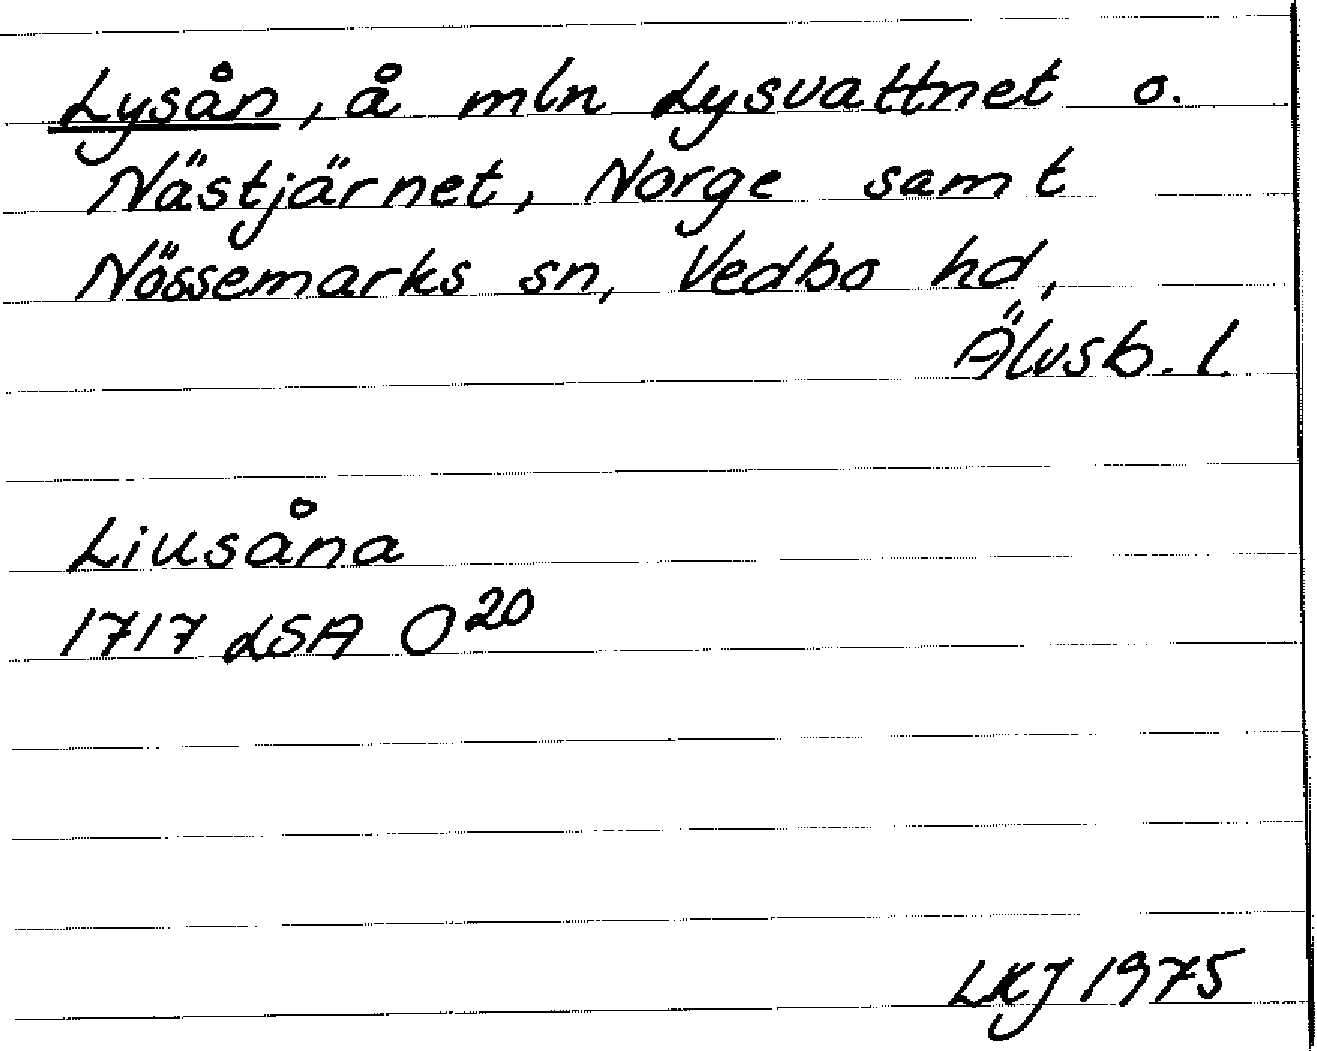 Lysån, å mln Lysvattnet o.
Nästjärnet, Norge samt
Nössemarks sn, Vedbo hd,
Älvsb. l.
Liusåna
1717 LSA O 20
LKJ 1975